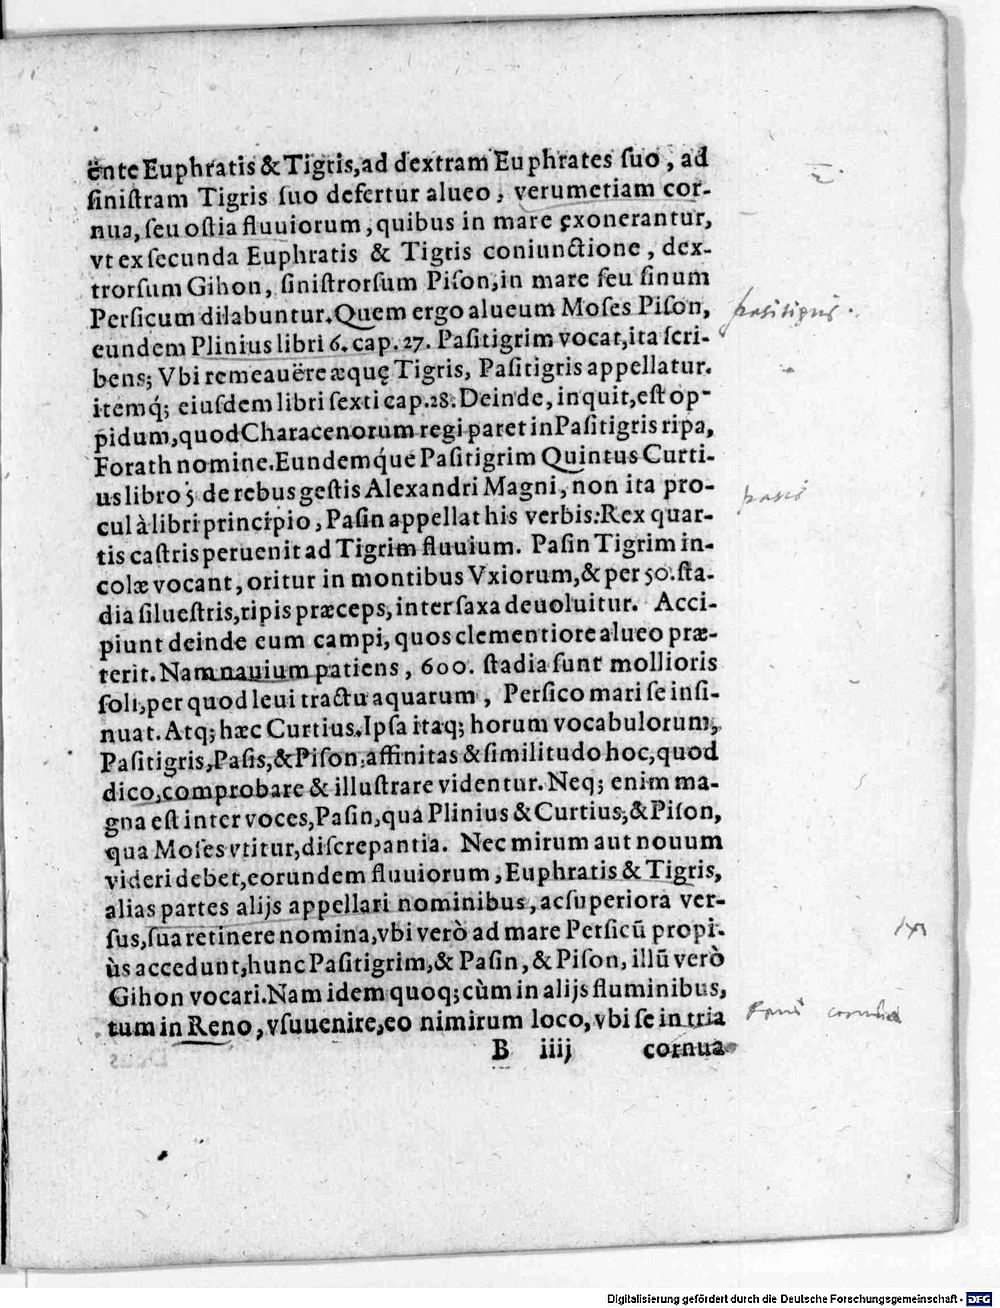 ënte Euphratis & Tigris, ad dextram Euphrates ſuo, ad
ſiniſtram Tigris ſuo defertur alueo, verumetiam cor-
nua, ſeu oſtia fluuiorum, quibus in mare exonerantur,
vt ex ſecunda Euphratis & Tigris coniunctione, dex-
trorſum Gihon, ſiniſtrorſum Piſon, in mare ſeu ſinum
Perſicum dilabuntur. Quem ergo alueum Moſes Piſon,
eundem Plinius libri 6. cap. 27. Paſitigrim vocat, ita ſcri-
bens; Vbi remeauëre æquę Tigris, Paſitigris appellatur.
itemq́; eiuſdem libri ſexti cap. 28. Deinde, inquit, eſt op-
pidum, quod Characenorum regi paret in Paſitigris ripa,
Forath nomine. Eundemq́ue Paſitigrim Quintus Curti-
us libro 5 de rebus geſtis Alexandri Magni, non ita pro-
cul à libri principio, Paſin appellat his verbis: Rex quar-
tis caſtris peruenit ad Tigrim fluuium. Paſin Tigrim in-
colæ vocant, oritur in montibus Vxiorum, & per 50. ſta-
dia ſilueſtris, ripis præceps, inter ſaxa deuoluitur. Acci-
piunt deinde eum campi, quos clementiore alueo præ-
terit. Nam nauium patiens, 600. ſtadia ſunt mollioris
ſoli, per quod leui tractu aquarum, Perſico mari ſe inſi-
nuat. Atq; hæc Curtius. Ipſa itaq; horum vocabulorum,
Paſitigris, Paſis, & Piſon, affinitas & ſimilitudo hoc, quod
dico, comprobare & illuſtrare videntur. Neq; enim ma-
gna eſt inter voces, Paſin, qua Plinius & Curtius; & Piſon,
qua Moſes vtitur, diſcrepantia. Nec mirum aut nouum
videri debet, eorundem fluuiorum, Euphratis & Tigris,
alias partes alijs appellari nominibus, ac ſuperiora ver-
ſus, ſua retinere nomina, vbi verò ad mare Perſicũ propi-
ùs accedunt, hunc Paſitigrim, & Paſin, & Piſon, illũ verò
Gihon vocari. Nam idem quoq; cùm in alijs fluminibus,
tum in Reno, vſu uenire, eo nimirum loco, vbi ſe in tria
B iiij cornua
pasitigris.
pasis
cornua
Digitalisierung gefördert durch die Deutsche Forschungsgemeinschaft - DFG